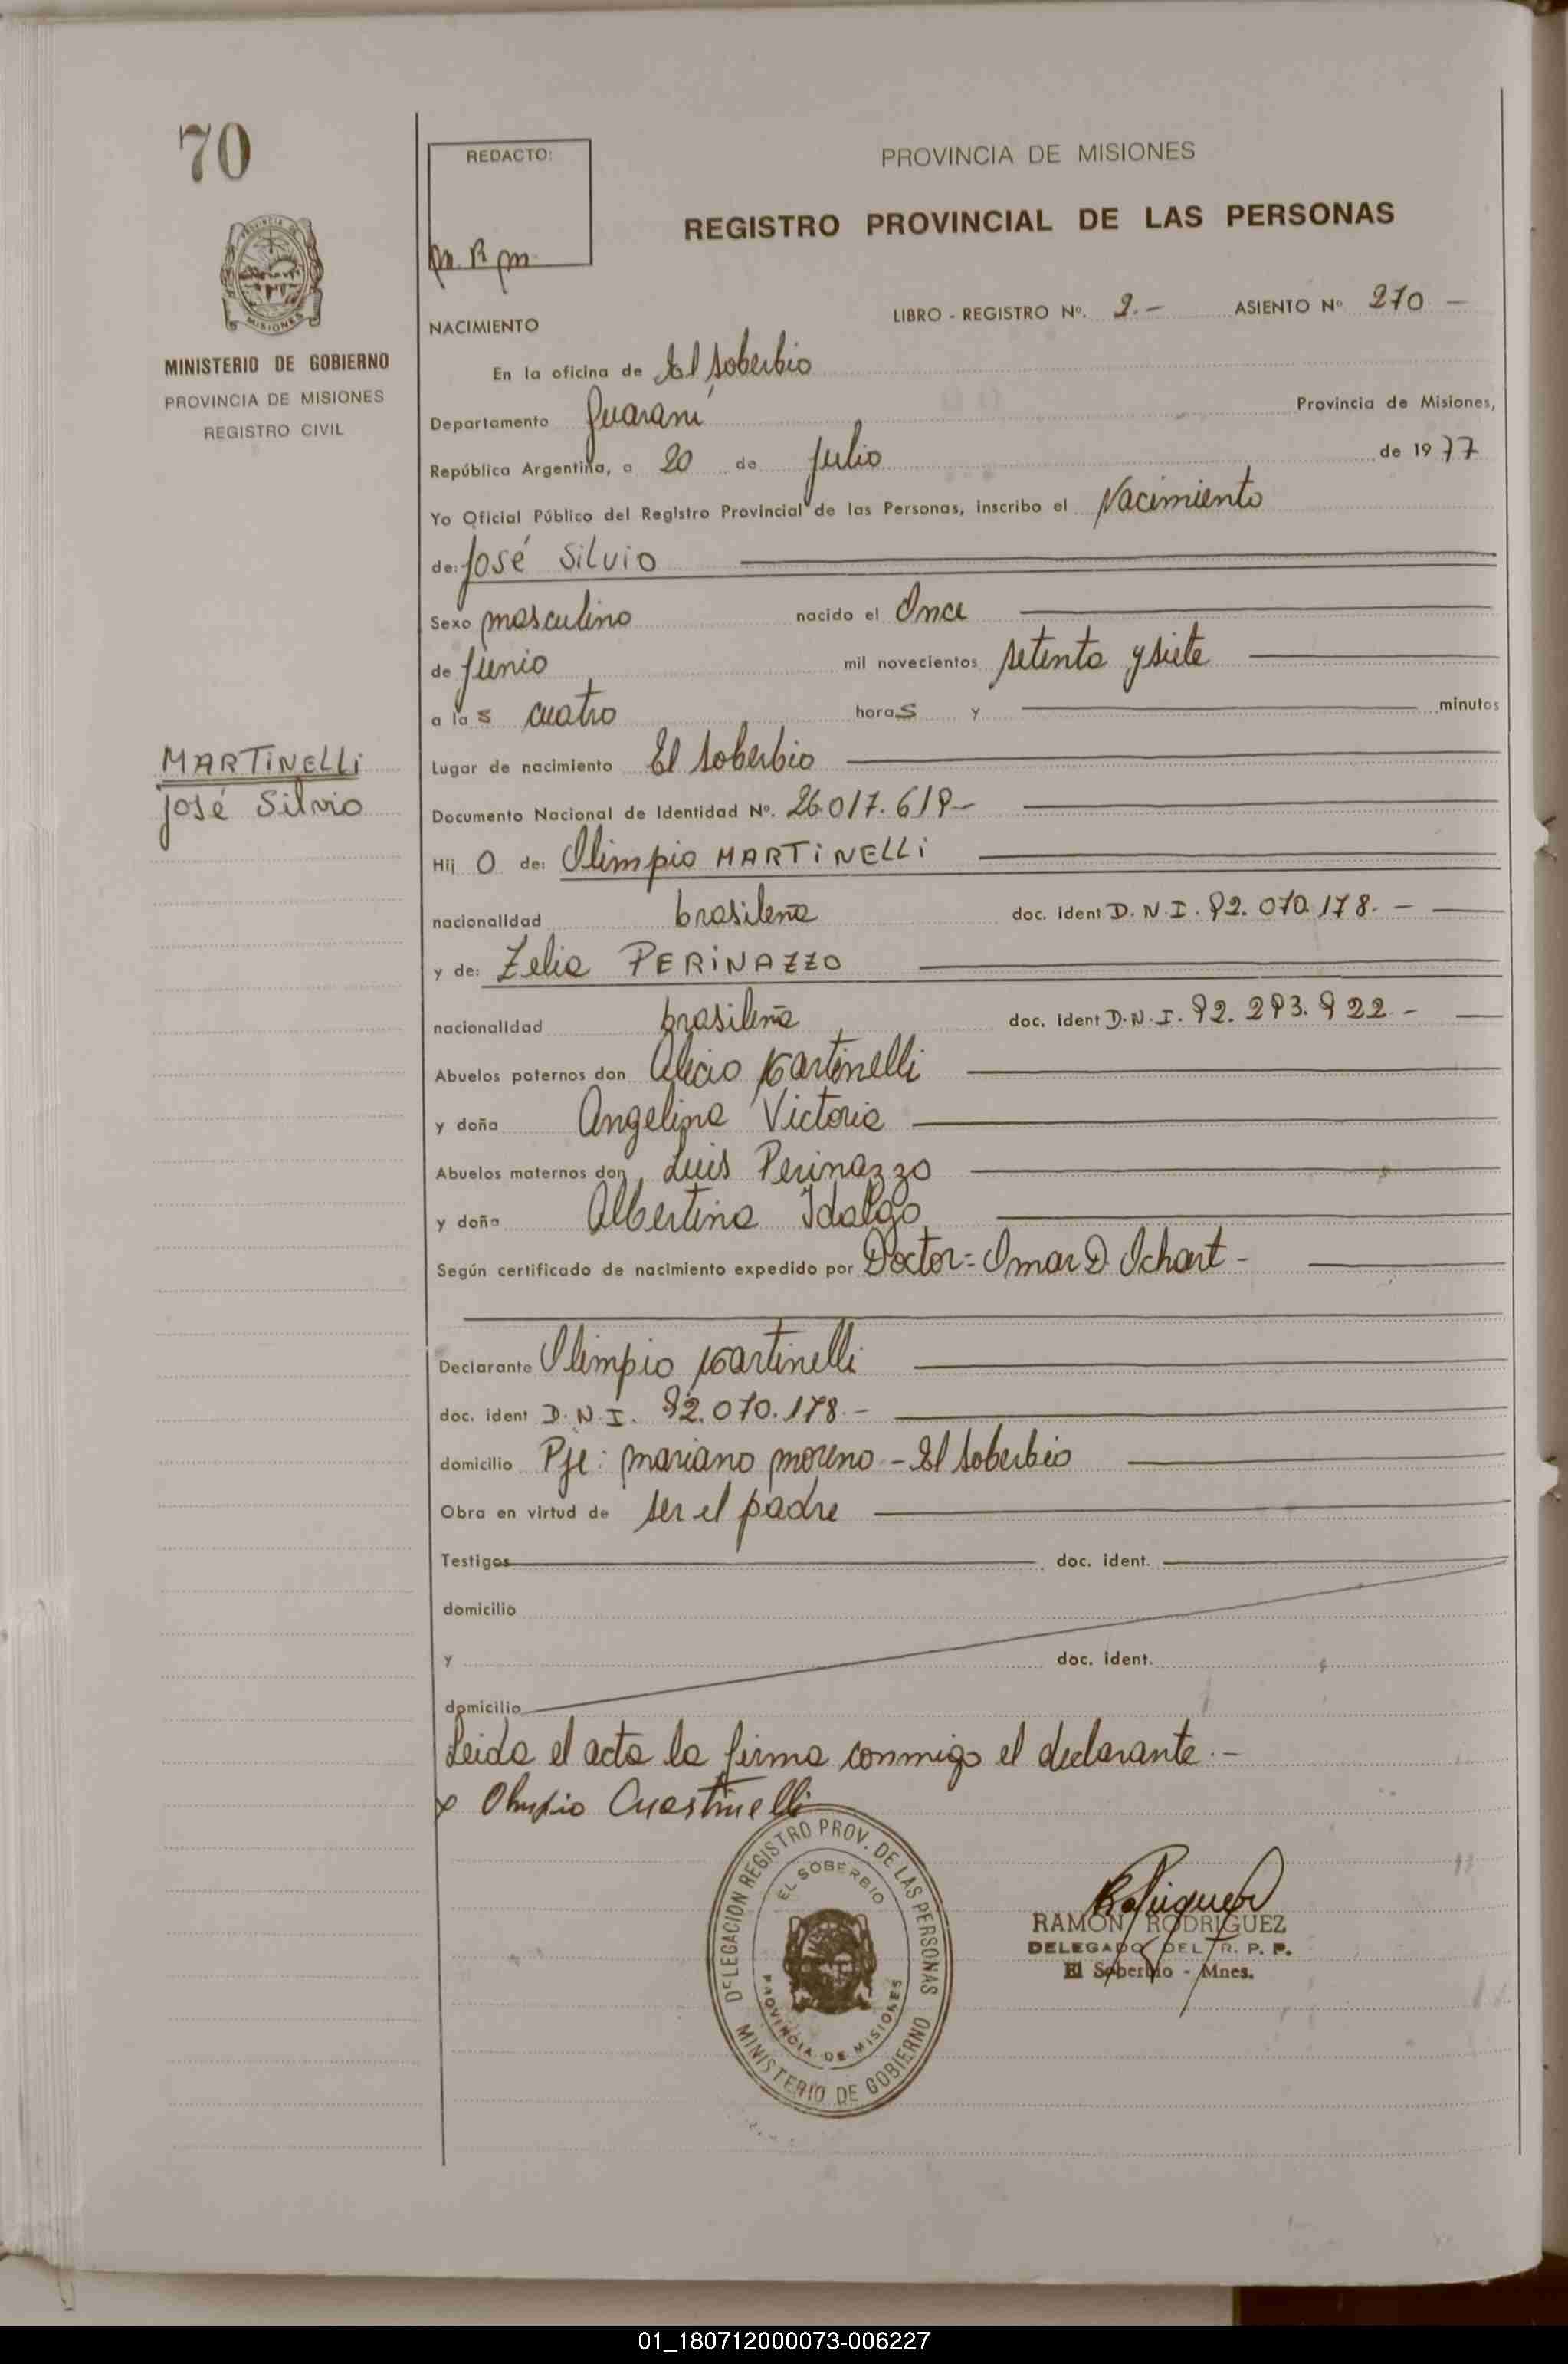 70
REDACTO:
PROVINCIA DE MISIONES
REGISTRO PROVINCIAL DE LAS PERSONAS
MISIONES
MINISTERIO DE GOBIERNO
PROVINCIA DE MISIONES
REGISTRO CIVIL
LIBRO - REGISTRO Nº. 2.- ASIENTO Nº 270 -
NACIMIENTO
En la oficina de El Soberbio
Departamento Guaraní Provincia de Misiones,
República Argentina, a 20 de Julio de 1977
Yo Oficial Público del Registro Provincial de las Personas, inscribo el Nacimiento
de: José Silvio
Sexo masculino nacido el Once
de Junio mil novecientos setenta y siete
a las cuatro horas y minutos
MARTINELLI
José Silvio
Lugar de nacimiento El Soberbio
Documento Nacional de Identidad Nº. 26.017.619-
Hijo de: Olimpio MARTINELLI
nacionalidad brasileña doc. ident D.N.I. 92.070.178.-
y de: Zelia PERINAZZO
nacionalidad brasileña doc. ident D.N.I. 92.293.922-
Abuelos paternos don Alicio Martinelli
y doña Angelina Victoria
Abuelos maternos don Luis Perinazzo
y doña Albertina Idalgo
Según certificado de nacimiento expedido por Doctor= Omar D. Ochart-
Declarante Olimpio Martinelli
doc. ident D.N.I. 92.070.178.-
domicilio Pje: Mariano Moreno - El Soberbio
Obra en virtud de ser el padre
Testigos doc. ident.
domicilio
y doc. ident.
domicilio
Leida el acta la firma conmigo el declarante.-
x Olimpio Martinelli
DELEGACION REGISTRO PROV. DE LAS PERSONAS
EL SOBERBIO
PROVINCIA DE MISIONES
MINISTERIO DE GOBIERNO
RAMON RODRIGUEZ
DELEGADO DEL R. P. P.
El Soberbio - Mnes.
01_180712000073-006227